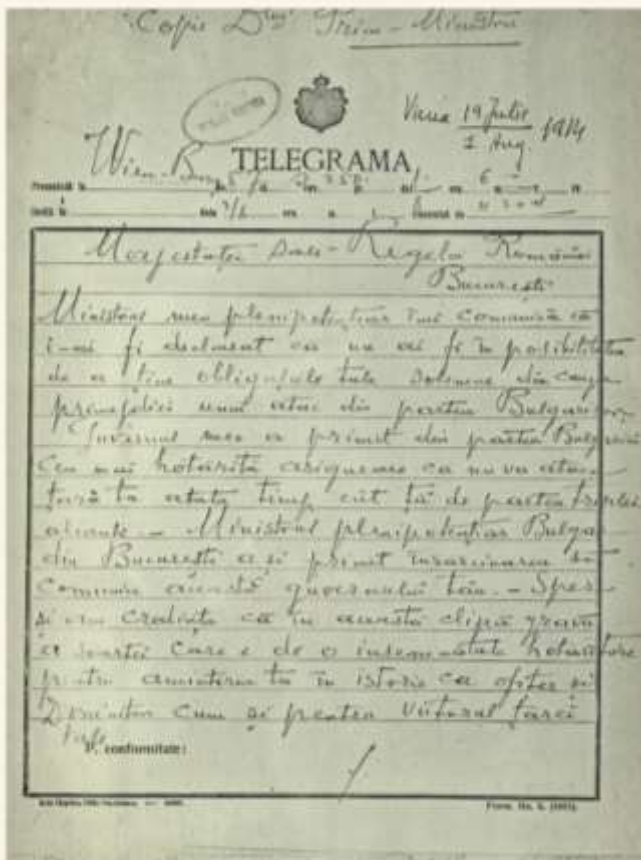 Copie Dlui Prim-Ministru
Viena 19 Julie
1 Aug. 1914
TELEGRAMA
Wien-Buc
Majestăței Sale Regelui României
București
Ministrul meu plenipotențiar îmi comunică că
i-ai fi declarat ca nu ai fi în posibilitatea
de a ține obligațiile tale solemne din cauza
primejdiei unui atac din partea Bulgariei.
Guvernul meu a primit din partea Bulgariei
Cea mai hotărîtă asigurare ca nu va ataca
țara ta atata timp cât ții de partea triplei
aliante – Ministrul plenipotențiar Bulgar
din București a și primit insarcinarea să
Comunice aceasta guvernului tău. – Sper
și am credința ca în aceasta clipă gravă
a soartei Care e de o insemnatate hotarîtore
pentru amintirea ta în istorie ca ofițer și
Domnitor cum și pentru viitorul țarei
tale
P. conformitate: